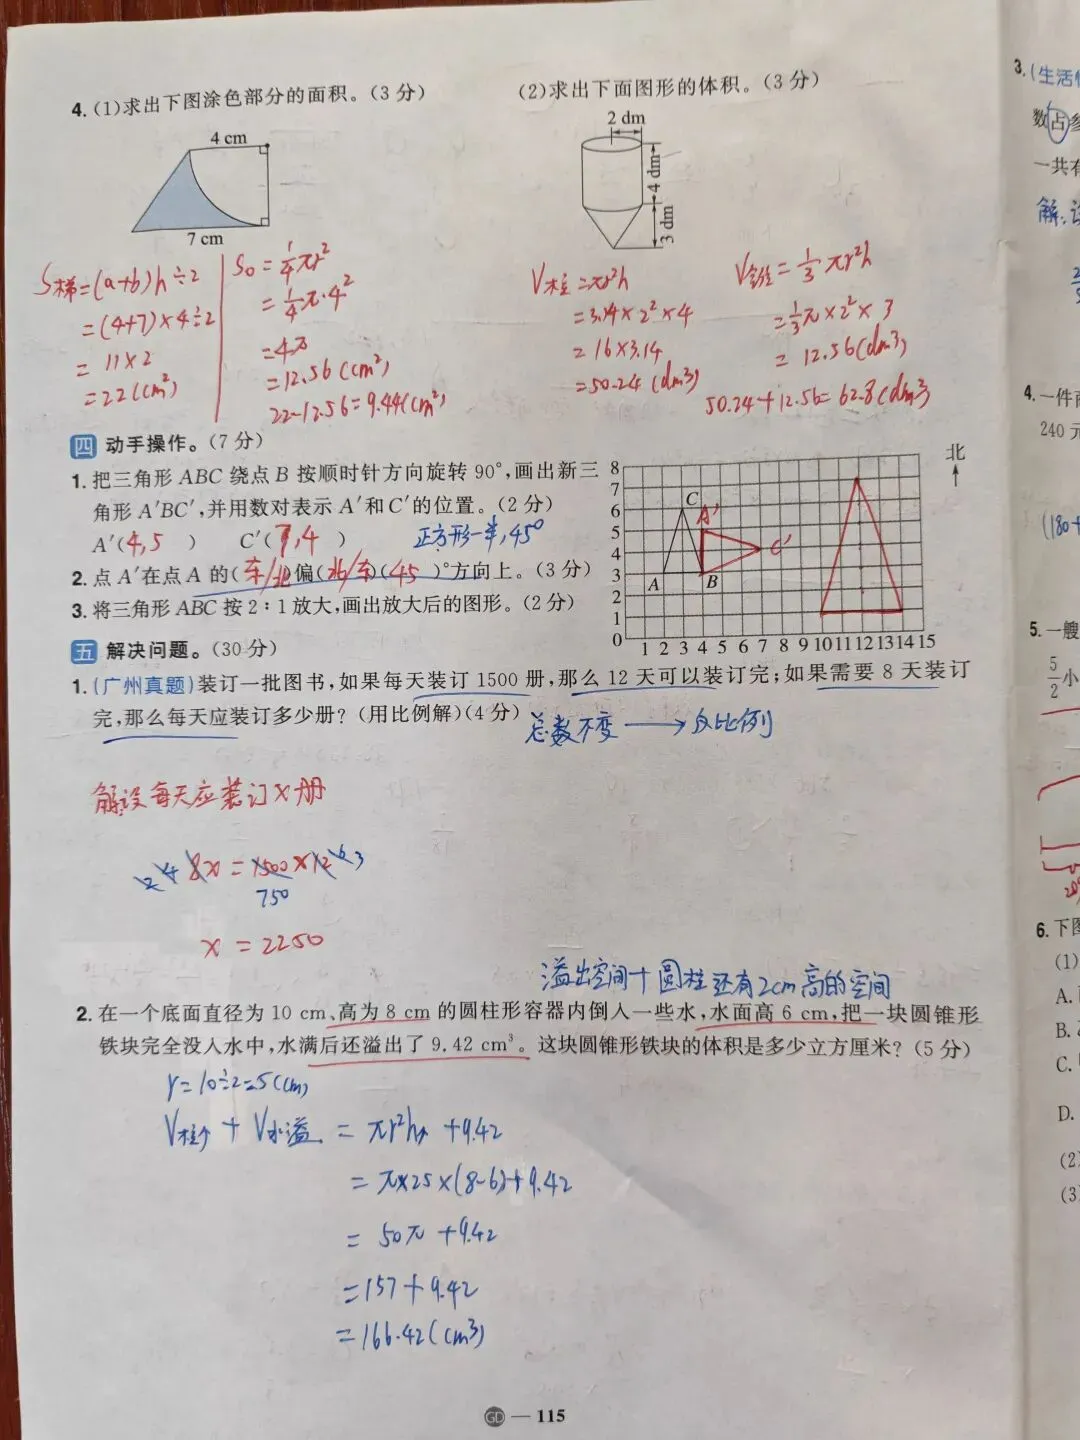 4. (1)求出下图涂色部分的面积。(3分)
(2)求出下面图形的体积。(3分)
4 cm
7 cm
2 dm
4 dm
3 dm
S梯=(a+b)h÷2
=(4+7)×4÷2
= 11×2
=22(cm²)
S○=¼πr²
=¼π·4²
=4π
=12.56(cm²)
22-12.56=9.44(cm²)
V柱=πr²h
=3.14×2²×4
=16×3.14
=50.24(dm³)
V锥=⅓πr²h
=⅓π×2²×3
=12.56(dm³)
50.24+12.56=62.8(dm³)
四 动手操作。(7分)
1. 把三角形 ABC 绕点 B 按顺时针方向旋转 90°,画出新三
角形 A′BC′,并用数对表示 A′和 C′的位置。(2分)
A′(4,5 ) C′(7,4 ) 正方形一半,45°
2. 点 A′在点 A 的(东/北)偏(北/东)(45 )°方向上。(3分)
3. 将三角形 ABC 按 2∶1 放大,画出放大后的图形。(2分)
北
8
7
6
5
4
3
2
1
0
1 2 3 4 5 6 7 8 9 10 11 12 13 14 15
C
A′
C′
A
B
五 解决问题。(30分)
1. (广州真题)装订一批图书,如果每天装订 1500 册,那么 12 天可以装订完;如果需要 8 天装订
完,那么每天应装订多少册?(用比例解)(4分)
总数不变 → 反比例
解:设每天应装订x册
2 4 8x=1500×12 6 3
750
x=2250
溢出空间+圆柱还有2cm高的空间
2. 在一个底面直径为 10 cm、高为 8 cm 的圆柱形容器内倒入一些水,水面高 6 cm,把一块圆锥形
铁块完全没入水中,水满后还溢出了 9.42 cm³。这块圆锥形铁块的体积是多少立方厘米?(5分)
r=10÷2=5(cm)
V柱↑+V水溢=πr²h↑+9.42
=π×25×(8-6)+9.42
=50π+9.42
=157+9.42
=166.42(cm³)
GD — 115
3. (生活
数占
一共有
解:设
4. 一件
240元
(180+
5. 一艘
5/2小
6. 下图
(1)
A.
B.
C.
D.
(2)
(3)